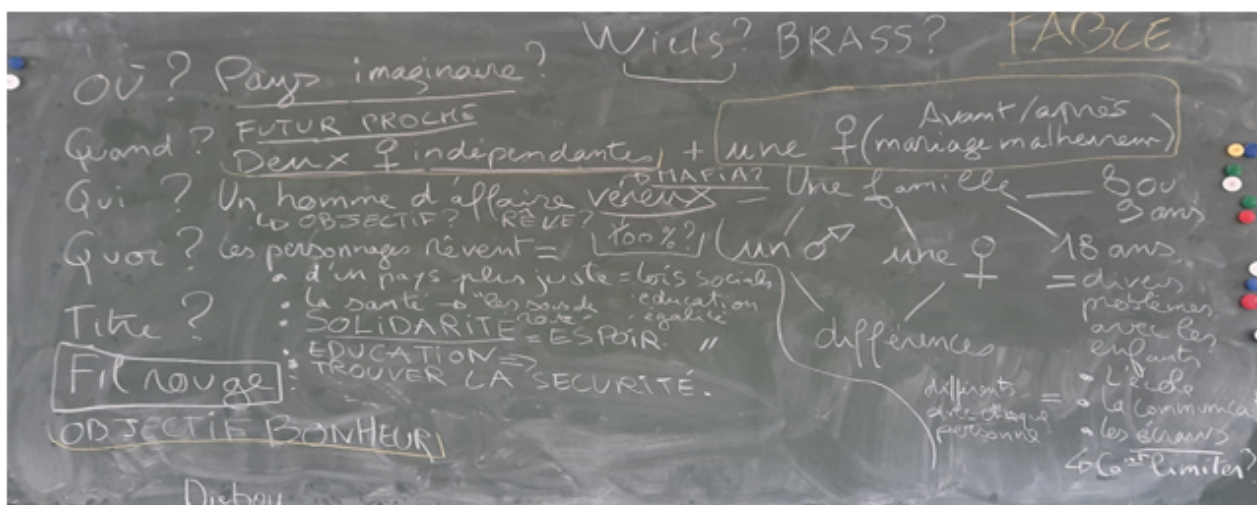 Wiels? BRASS? FABLE
OÙ? Pays imaginaire?
Quand? FUTUR PROCHE
Deux ♀ indépendantes + une ♀ (Avant/après mariage malheureux)
Qui? Un homme d'affaire véreux = Une famille — 8 ou 9 ans
↳ MAFIA?
↳ OBJECTIF? RÊVE?
Quoi? Les personnages rêvent = 100%? un ♂ une ♀ 18 ans
• d'un pays plus juste = lois sociales
• la santé → "les sous de éducation
égalité "
Titre? • SOLIDARITÉ = ESPOIR
• EDUCATION ⇒
Fil rouge : • TROUVER LA SECURITÉ.
OBJECTIF BONHEUR
différences
= divers problèmes avec les enfants
différents avec chaque personne =
• L'école
• La communica
• les écrans
↳ Co^mt limiter?